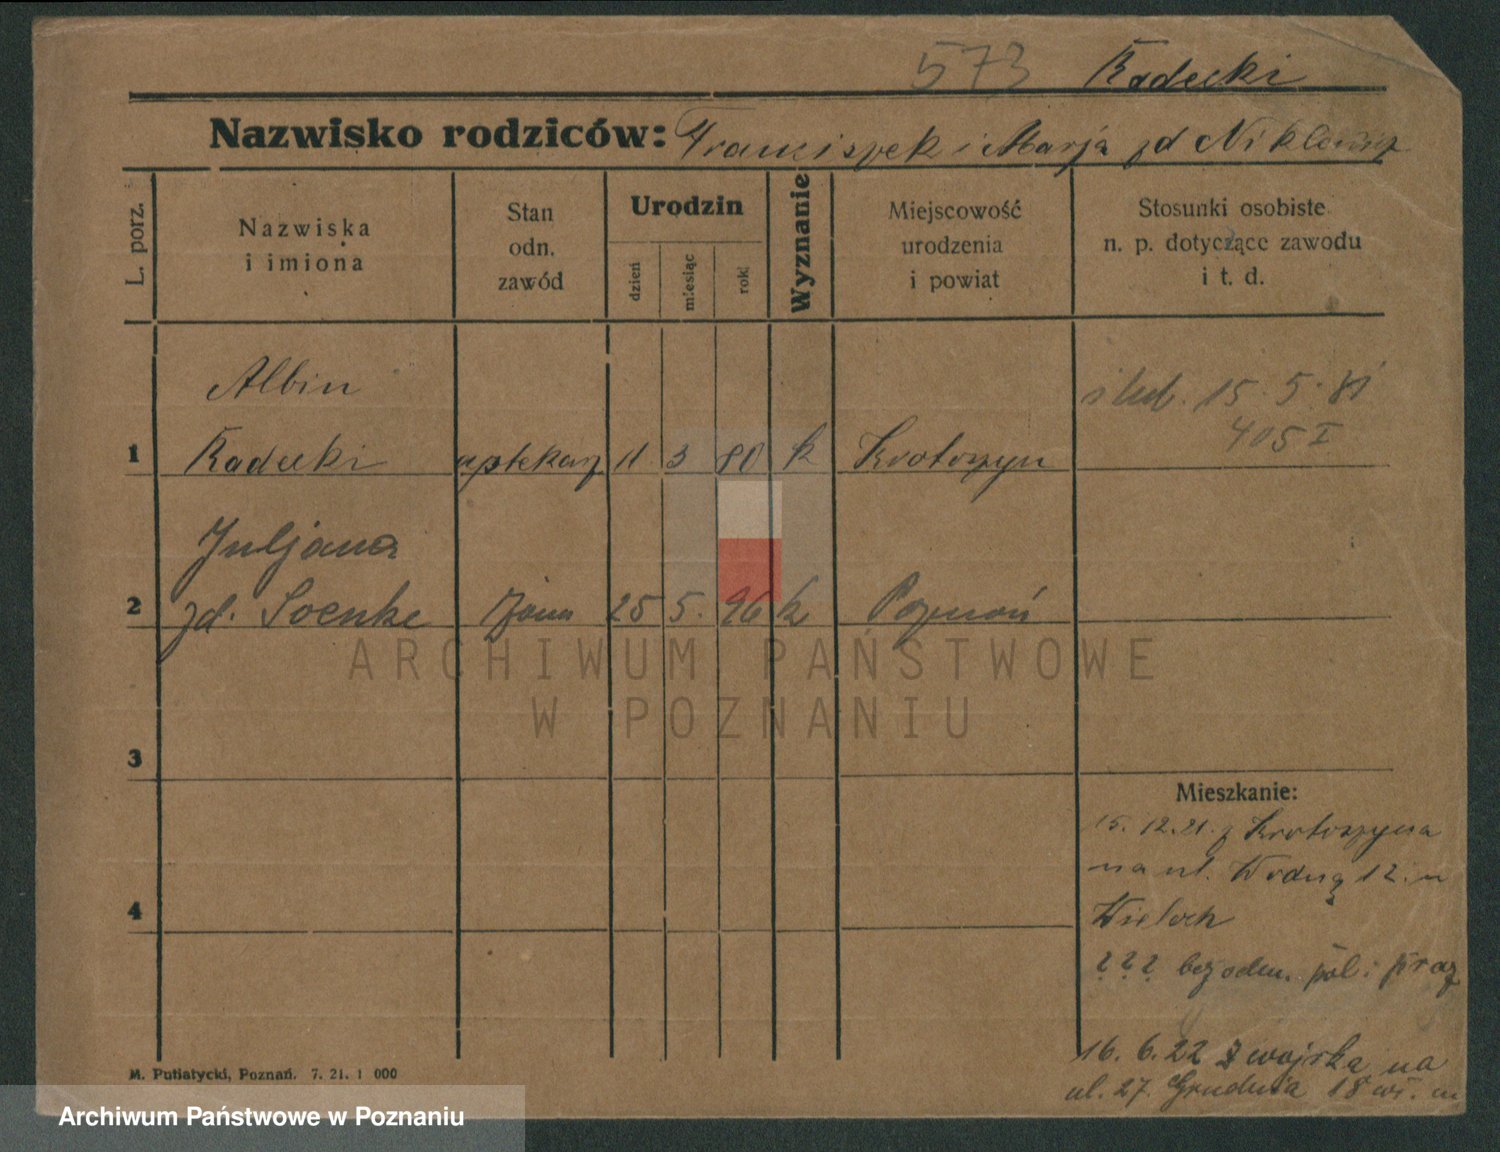 573 Radecki
Nazwisko rodziców: Franciszek i Marja zd
L. porz.
Nazwiska
i imiona
Stan
odn.
zawód
Urodzin
dzień
miesiąc
rok
Wyznanie
Miejscowość
urodzenia
i powiat
Stosunki osobiste
n. p. dotyczące zawodu
i t. d.
Albin
1 Radecki aptekarz 11 3 80 k Krotoszyn
15. 5. 81
405 I
Juljana
2 zd. Soenke żona 25 5. 96 k Poznań
ARCHIWUM PAŃSTWOWE
W POZNANIU
3
4
Mieszkanie:
15. 12. 21. z Krotoszyna
na ul. Wodną 12. u
Wieloch
? ? ? bez odm. pol i
16. 6. 22 z wojska na
ul. 27. Grudnia 18
M. Putiatycki, Poznań. 7. 21. 1 000
Archiwum Państwowe w Poznaniu